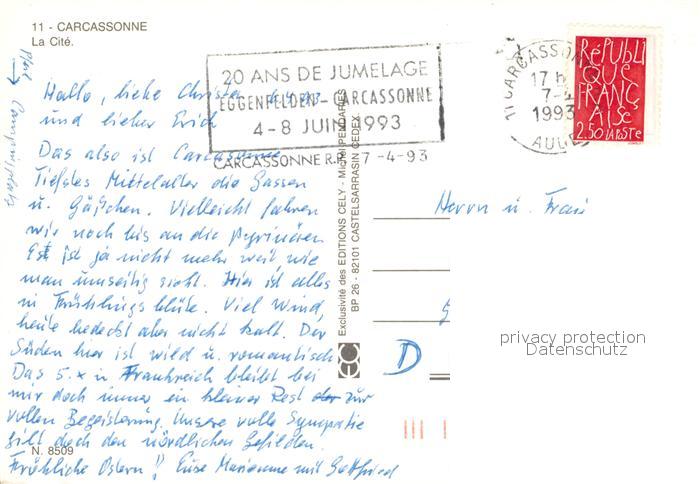 11 - CARCASSONNE
La Cité.
20 ANS DE JUMELAGE
EGGENFELDEN-CARCASSONNE
4-8 JUIN 1993
CARCASSONNE R.P. 7-4-93
11 CARCASSONNE
17 H
7-4
1993
AUDE
RéPUBLI
QUE
FRANÇ
AISE
2.50 LA POSTE
Platz
Campingplatz
Hallo, liebe Christa
und lieber Erich
Das also ist Carcassonne
Tiefstes Mittelalter die Gassen
u. Gäßchen. Vielleicht fahren
wir noch bis an die Pyrinäen
Es ist ja nicht mehr weit wie
man umseitig sieht. Hier ist alles
in Frühlingsblüte. Viel Wind,
heute bedeckt aber nicht kalt. Der
Süden hier ist wild u. romantisch
Das 5. x in Frankreich bleibt bei
mir doch immer ein kleiner Rest zur
vollen Begeisterung. Unsere volle Sympatie
gilt doch den nördlichen Gefilden.
N. 8509
Fröhliche Ostern!! Eure Marianne mit Gottfried
Exclusivité des EDITIONS CELY - MIDI PENDARIES
BP 26 - 82101 CASTELSARRASIN CEDEX
Herrn u. Frau
D
privacy protection
Datenschutz